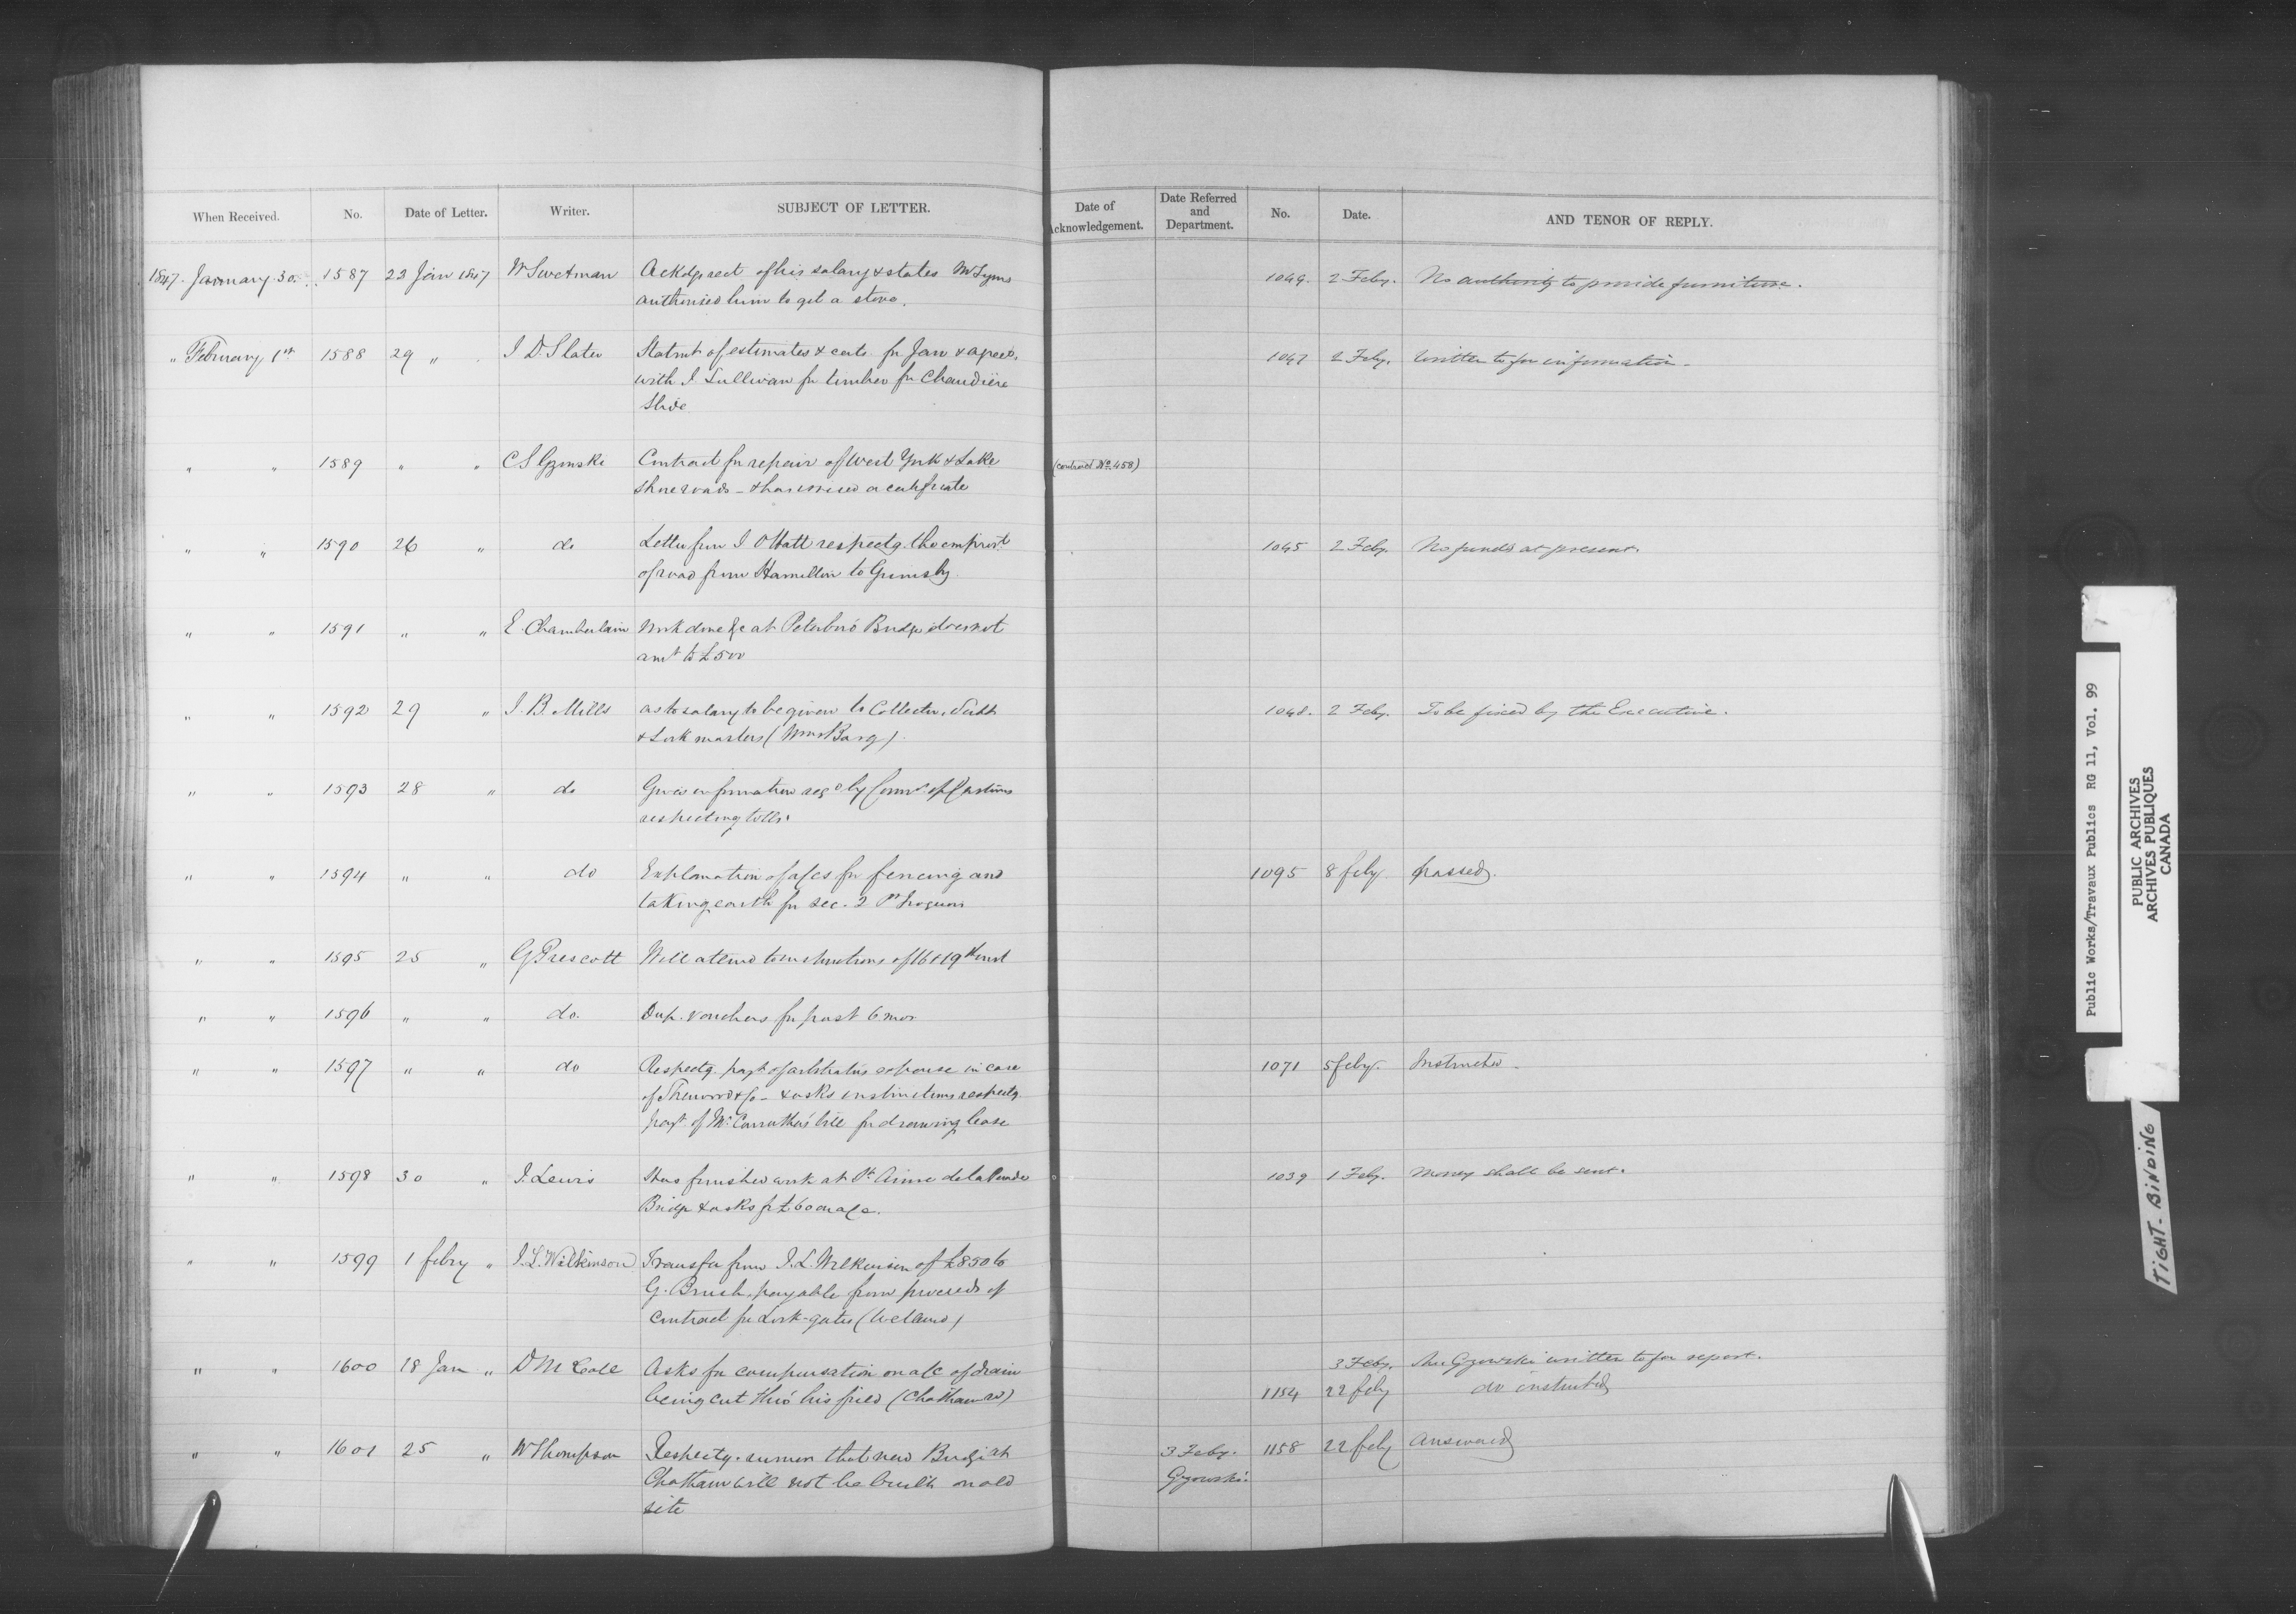 When Received. No. Date of Letter. Writer. SUBJECT OF LETTER. Date of Acknowledgement. Date Referred and Department. No. Date. AND TENOR OF REPLY.
1847. January 30. 1587 23 Jan 1847 W Swetman Ackdgs rect of his salary & states Mr Lyons 1049. 2 Feby. No authority to provide furniture.
authorised him to get a stove.
" February 1st 1588 29 " J D Slater Statmt of estimates & certs for Jan & agreet. 1047 2 Feby. Written to for information.
with J Sullivan for timber for Chaudière
Slide
" " 1589 " " C S Gzowski Contract for repair of West York & Lake (contract No. 458)
Shore roads - & has issued a certificate
" " 1590 26 " do Letter from J O Hatt respectg. the improvt. 1045 2 Feby. No funds at present.
of road from Hamilton to Grimsby.
" " 1591 " " E. Chamberlain Work done &c at Peterboro' Bridge does not
amt to £500
" " 1592 29 " J. B. Mills as to salary to be given to Collector, 1048. 2 Feby. To be fixed by the Executive.
& Lock masters (Wmsburg).
" " 1593 28 " do Gives information reqd by Commr of Customs
respecting tolls.
" " 1594 " " do Explanation of a/cs for fencing and 1095 8 feby passed.
taking earth for sec. 2 Pt Iroquois
" " 1595 25 " G Prescott Will attend to instructions of 16 & 19th inst
" " 1596 " " do. Dup. vouchers for past 6 mos.
" " 1597 " " do Respectg. payt. of arbitration expense in case 1071 5 feby. Instructed
of Sherwood & Co - & asks instructions respectg.
payt. of Mr Carruthers' bill for drawing lease
" " 1598 30 " J. Lewis Has finished work at St Anne de la Perade 1039 1 Feby. Money shall be sent.
Bridge & asks for £60 on a/c.
" " 1599 1 febry " J. L. Wilkinson Transfer from J. L. Wilkinson of £850 to
G. Brush, payable from proceeds of
contract for Lock-gates (Welland)
" " 1600 18 Jan " D McCole Asks for compensation on a/c of drain 3 Feby. Mr Gzowski written to for report.
being cut thro' his field (Chatham rd) 1154 22 feby do instructed
" " 1601 25 " W Thompson Respectg. rumor that new Bridge at 3 Feby. 1158 22 feby Answered
Chatham will not be built on old Gzowski.
site
Public Works/Travaux Publics RG 11, Vol. 99
PUBLIC ARCHIVES
ARCHIVES PUBLIQUES
CANADA
TIGHT-BINDING